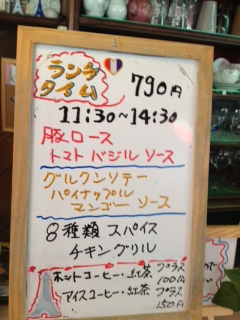 ランチ
タイム
790円
11:30~14:30
豚ロース
トマト バジル ソース
グルクンソテー
パイナップル
マンゴー ソース
8種類 スパイス
チキングリル
ホットコーヒー・紅茶 プラス
100円
アイスコーヒー・紅茶 プラス
150円